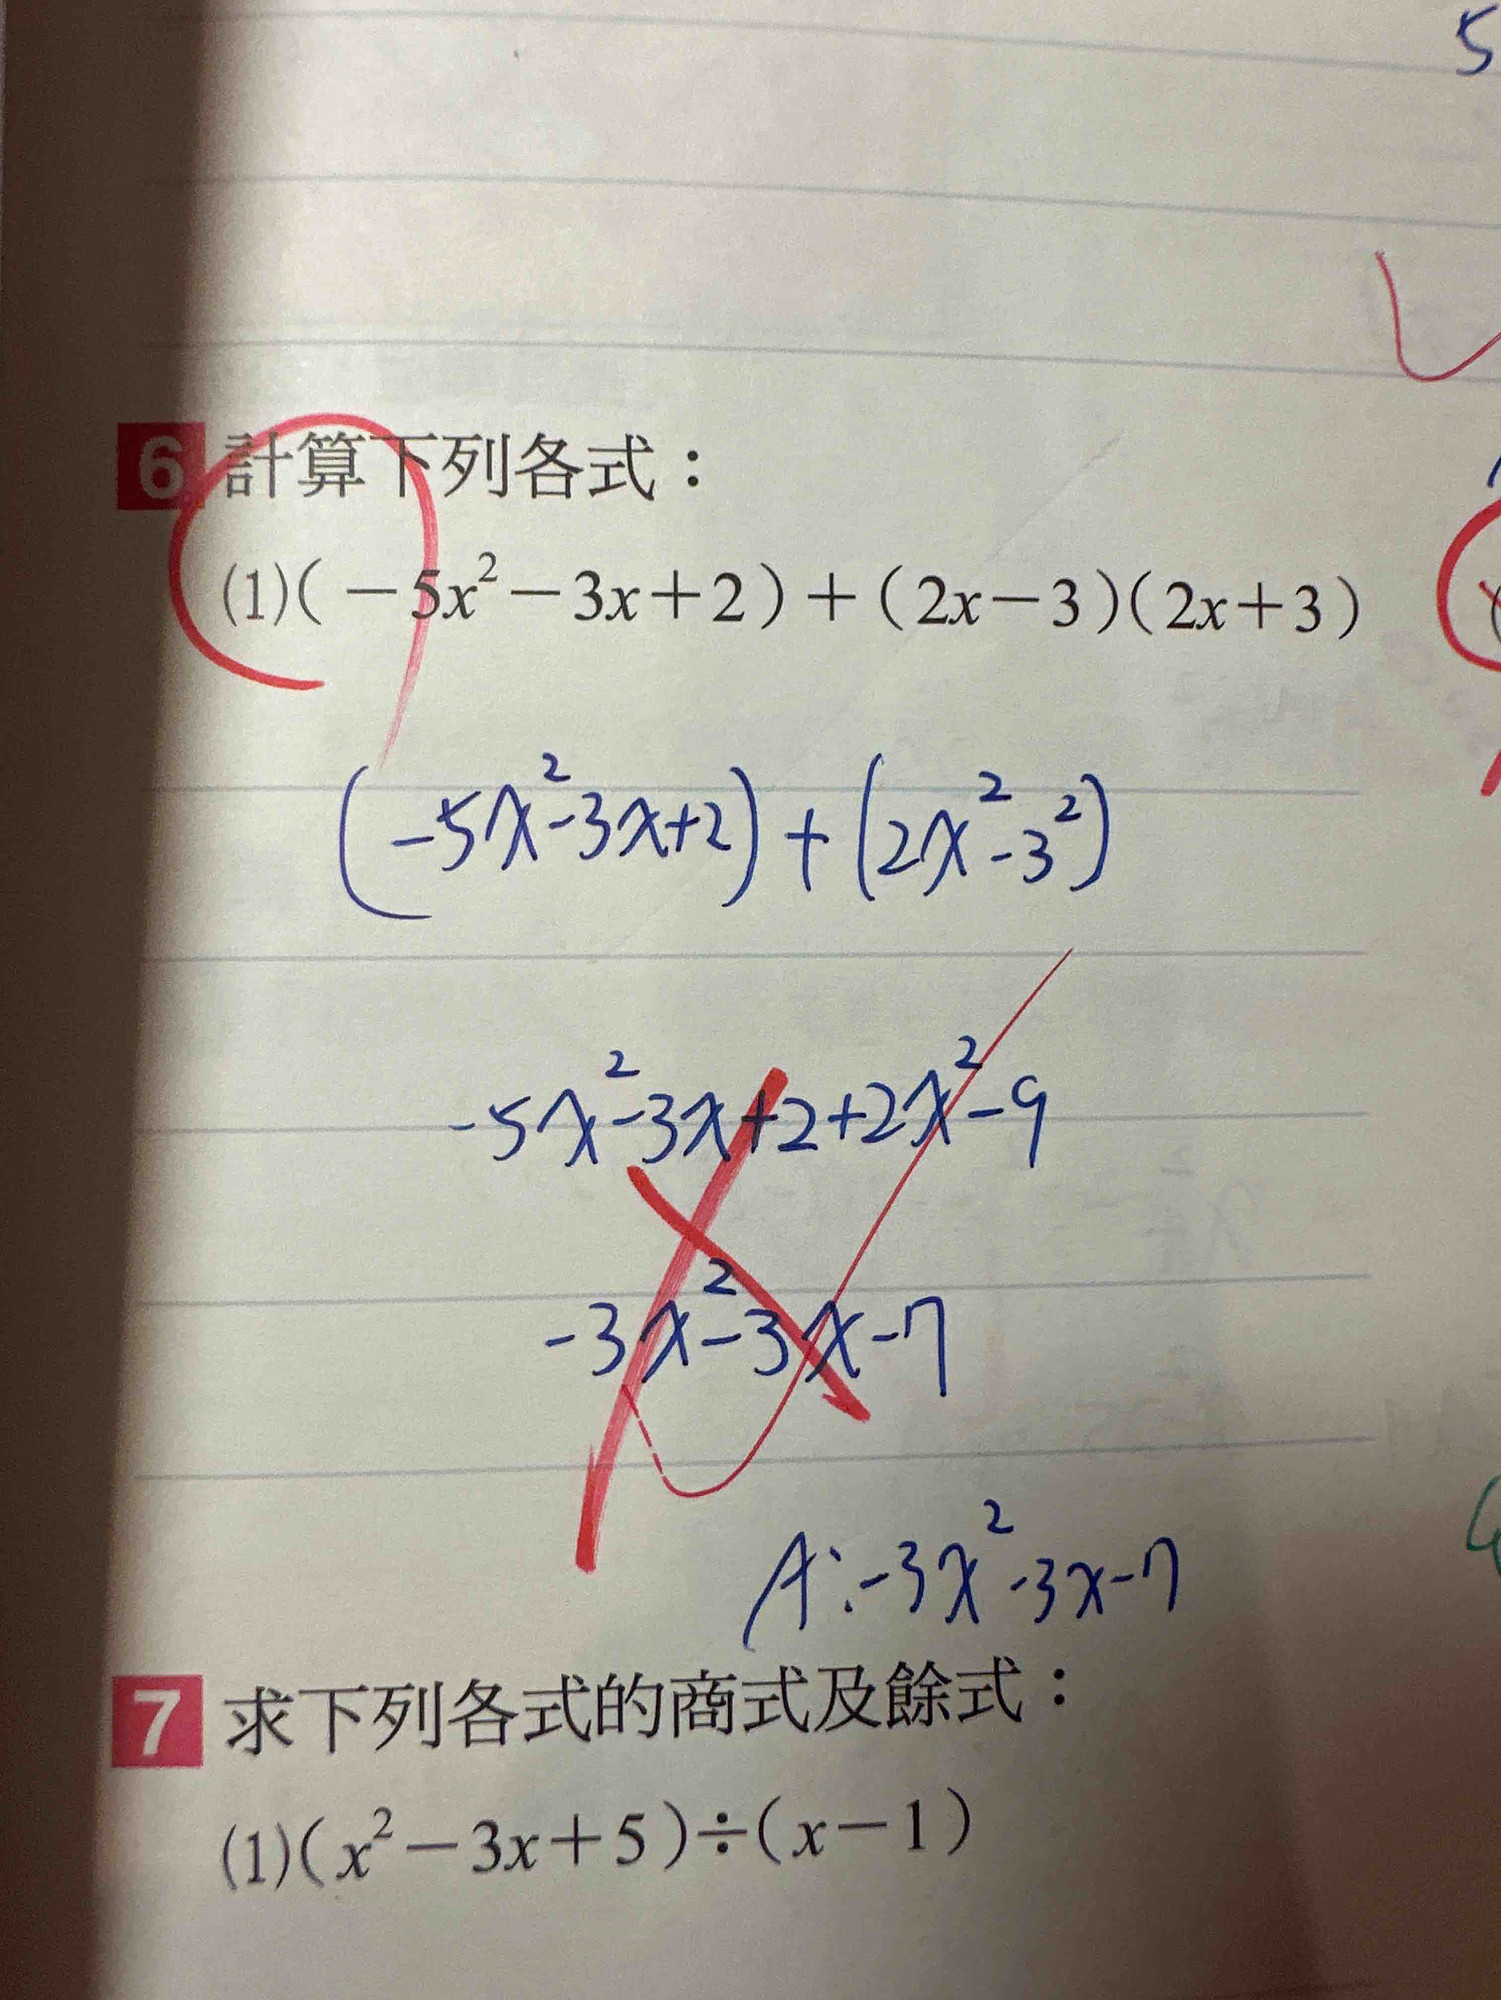 5
6 計算下列各式：
(1)(－5x²－3x＋2)＋(2x－3)(2x＋3)
(-5x²-3x+2)+(2x²-3²)
-5x²-3x+2+2x²-9
-3x²-3x-7
A:-3x²-3x-7
7 求下列各式的商式及餘式：
(1)(x²－3x＋5)÷(x－1)